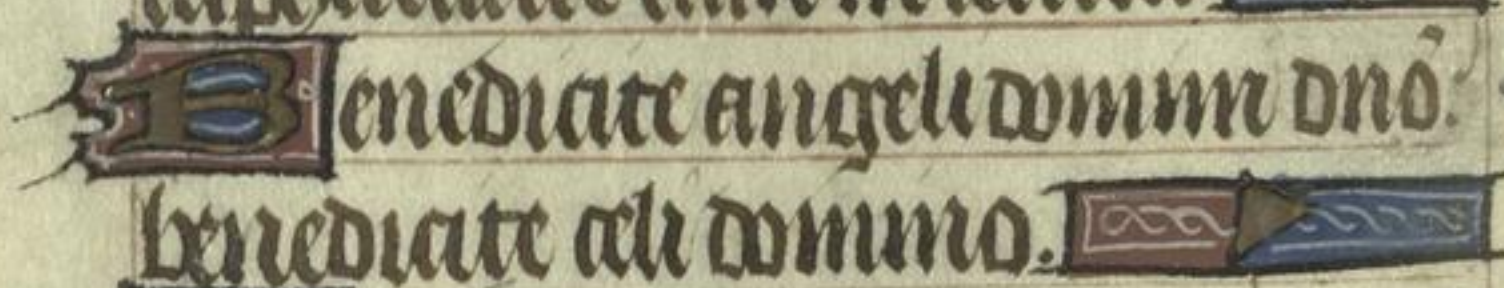 Benedicite angeli domini dnō:
benedicite celi domino.